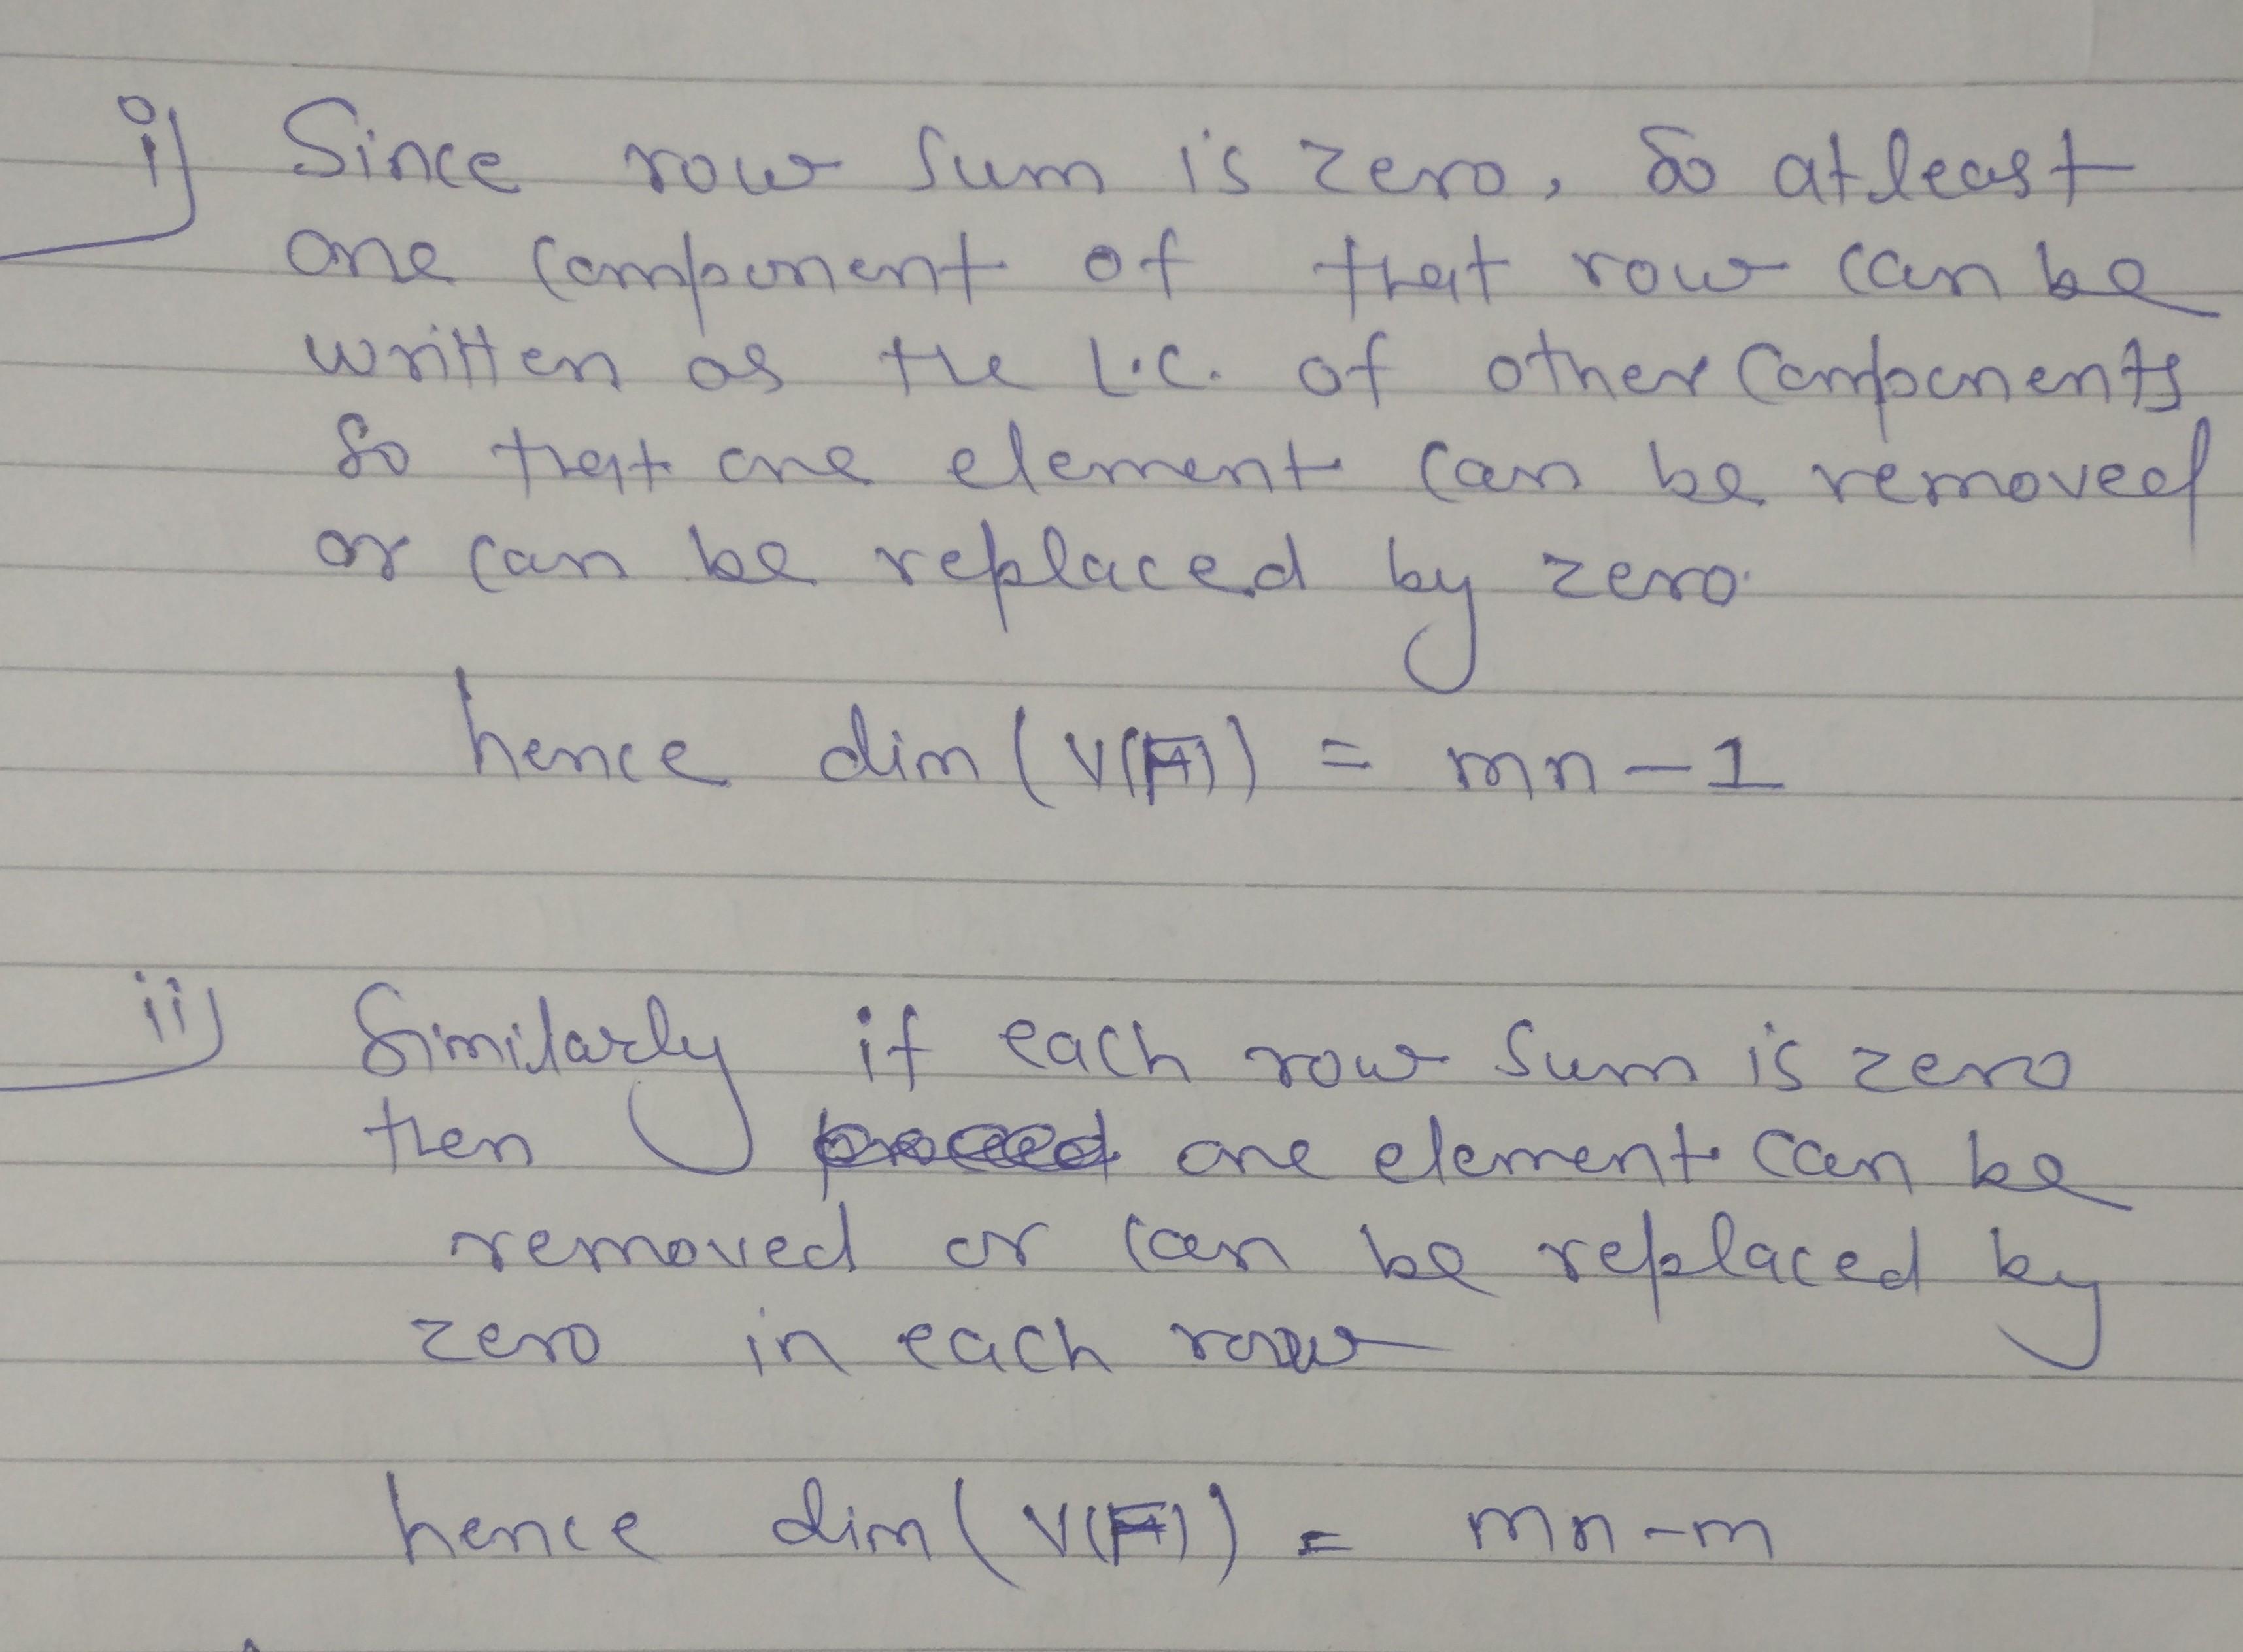 i) Since row sum is zero, So atleast
one component of that row can be
written as the L.C. of other components
So that one element can be removed
or can be replaced by zero.
hence dim(V(F)) = mn-1
ii) Similarly if each row sum is zero
then one element can be
removed or can be replaced by
zero in each row
hence dim(V(F)) = mn-m